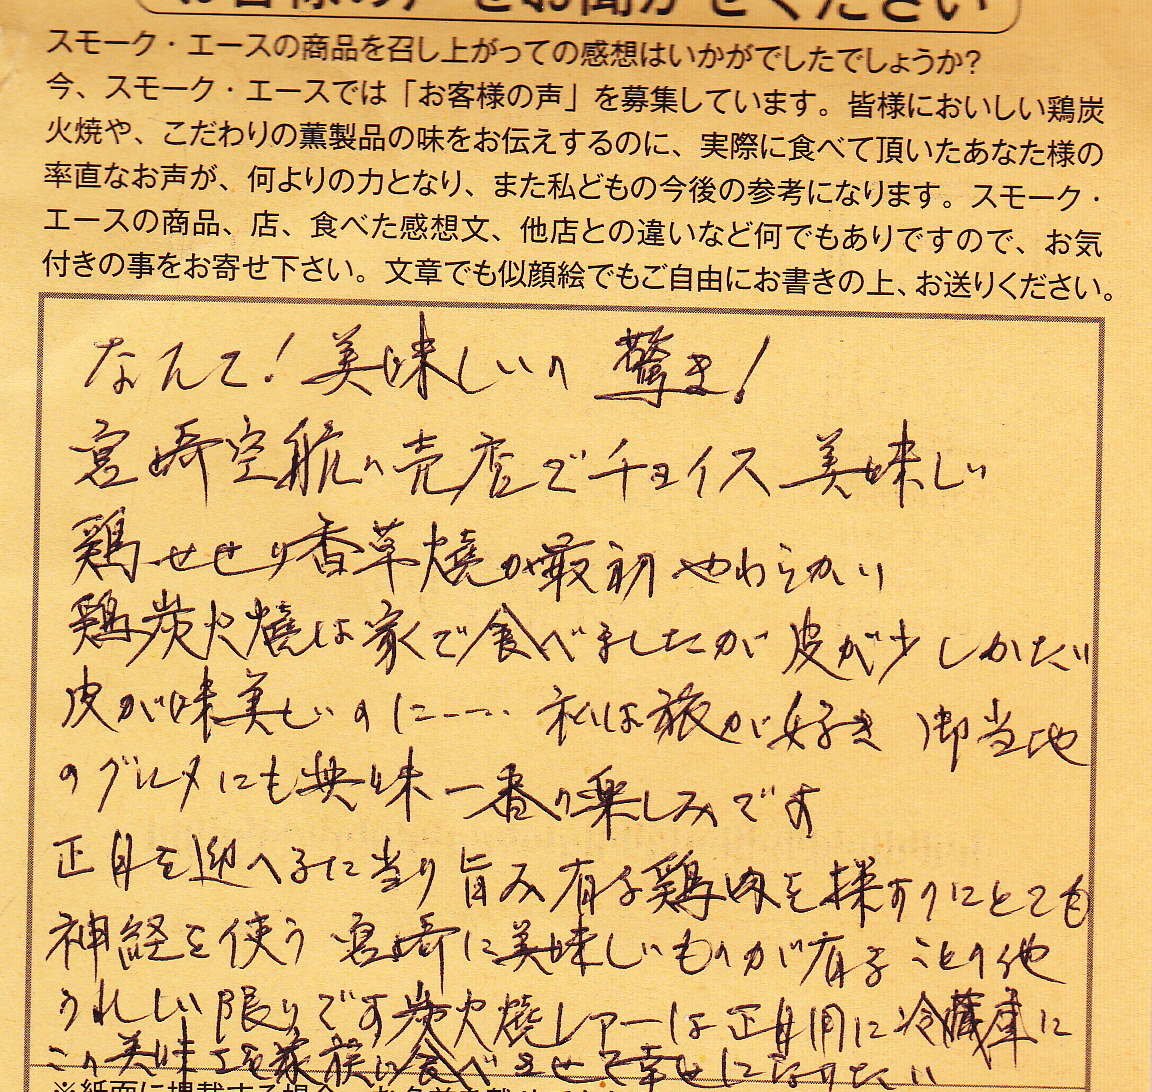 お客様の声をお聞かせください
スモーク・エースの商品を召し上がっての感想はいかがでしたでしょうか?
今、スモーク・エースでは「お客様の声」を募集しています。皆様においしい鶏炭
火焼や、こだわりの薫製品の味をお伝えするのに、実際に食べて頂いたあなた様の
率直なお声が、何よりの力となり、また私どもの今後の参考になります。スモーク・
エースの商品、店、食べた感想文、他店との違いなど何でもありですので、お気
付きの事をお寄せ下さい。文章でも似顔絵でもご自由にお書きの上、お送りください。
なんて!美味しいの驚き!
宮崎空航の売店でチョイス美味しい
鶏せせり香草焼が最初やわらかい
鶏炭火焼は家で食べましたが皮が少しかたい
皮が味美しいのに---.私は旅が好き御当地
のグルメにも興味一番の楽しみです
正月を迎へるに当り旨み有る鶏肉を探すのにとても
神経を使う宮崎に美味しいものが有ることの他
うれしい限りです炭火焼レアーは正月用に冷蔵庫に
この美味さを家族に食べさせて幸せになりたい